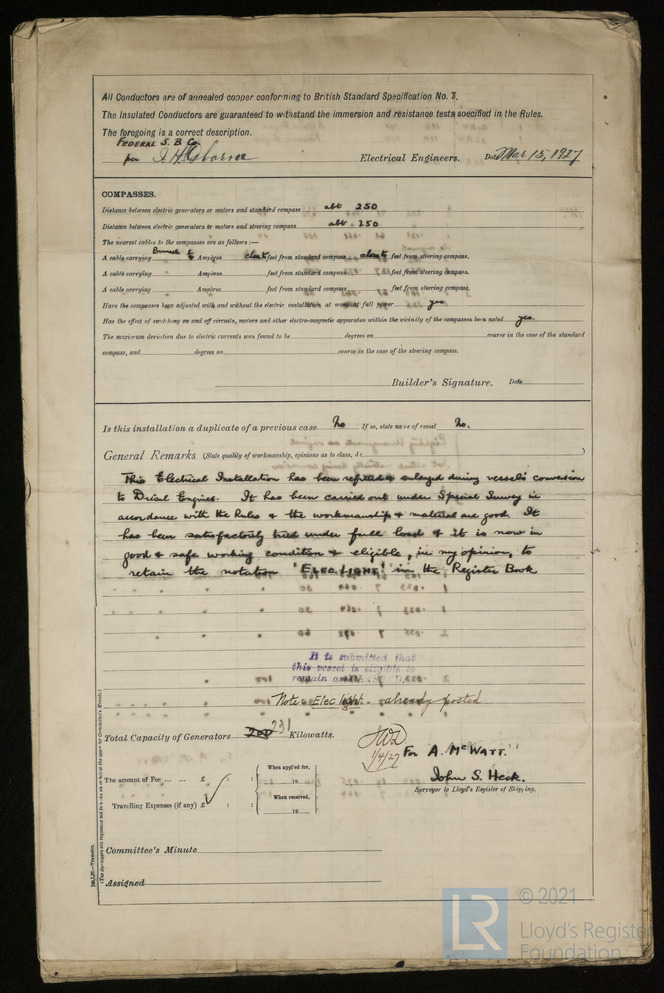 All Conductors are of annealed copper conforming to British Standard Specification No. 7.
The Insulated Conductors are guaranteed to withstand the immersion and resistance tests specified in the Rules.
The foregoing is a correct description.
FEDERAL S. B. Co.
per Electrical Engineers. Date Mar 15, 1927
COMPASSES.
Distance between electric generators or motors and standard compass abt 250
Distance between electric generators or motors and steering compass abt 250
The nearest cables to the compasses are as follows :—
A cable carrying Ampères feet from standard compass feet from steering compass.
A cable carrying Ampères feet from standard compass feet from steering compass.
A cable carrying Ampères feet from standard compass feet from steering compass.
Have the compasses been adjusted with and without the electric installation at work at full power yes
Has the effect of switching on and off circuits, motors and other electro-magnetic apparatus within the vicinity of the compasses been noted yes.
The maximum deviation due to electric currents was found to be degrees on course in the case of the standard
compass, and degrees on course in the case of the steering compass.
Builder's Signature. Date
Is this installation a duplicate of a previous case No If so, state name of vessel No.
General Remarks (State quality of workmanship, opinions as to class, &c.)
This Electrical Installation has been refitted & enlarged during vessels conversion
to Diesel Engines. It has been carried out under Special Survey in
accordance with the Rules & the workmanship & material are good. It
has been satisfactorily tried under full load & It is now in
good & safe working condition & eligible, in my opinion, to
retain the notation 'ELEC LIGHT' in the Register Book
It is submitted that
this vessel is eligible to
remain
Note Elec light - already posted
Total Capacity of Generators 231 Kilowatts.
1/4/27
For A. McWATT.
John S. Heck.
Surveyor to Lloyd's Register of Shipping.
The amount of Fee ... ... £ : : When applied for,
19
Travelling Expenses (if any) £ : : When received,
19
Committee's Minute
Assigned
LR
© 2021
Lloyd's Register
Foundation